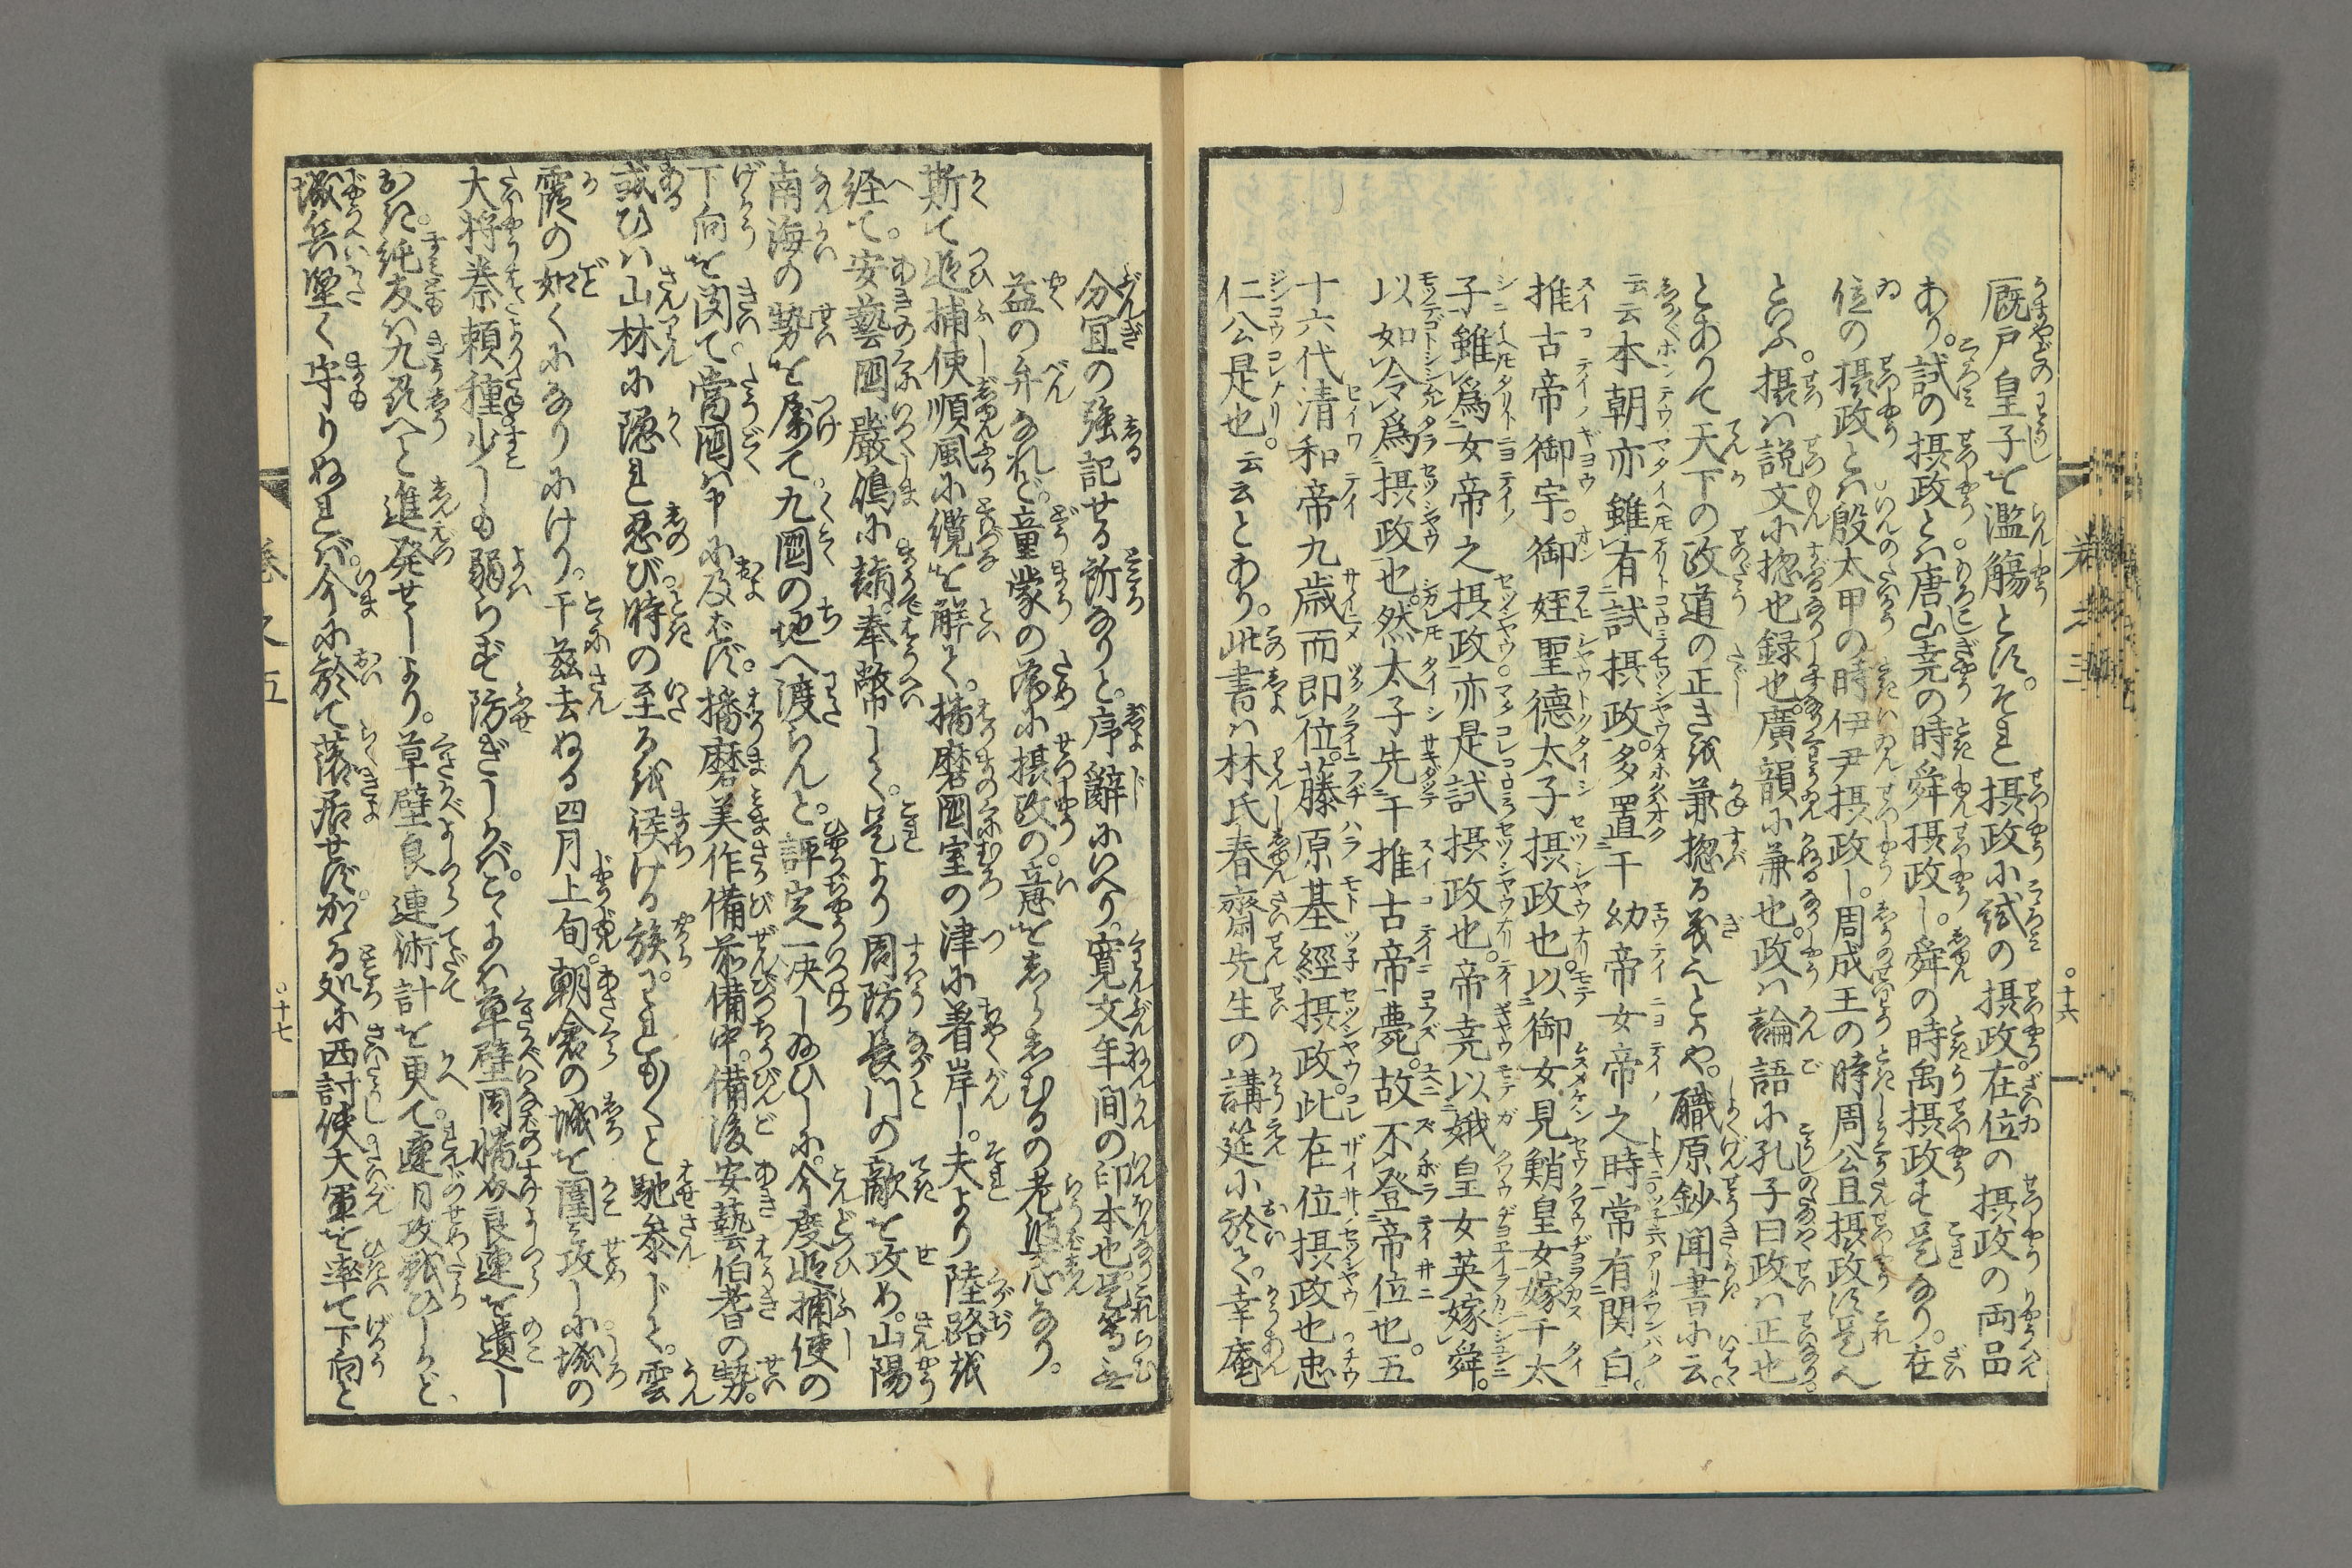 厩戸皇子を濫觴とす。それ摂政に試の摂政。在位の摂政の両品
あり。試の摂政とは唐山尭の時舜摂政し。舜の時禹摂政す是なり。在
位の摂政とは殷太甲の時伊尹摂政し。周成王の時周公旦摂政す是也
といふ。摂は説文に揔也録也。廣韻に兼也。政は論語に孔子曰政は正也
とありて天下の政道の正きを兼揔る義也とかや。職原鈔聞書に云。
云云本朝亦雖有試摂政。多置于幼帝女帝之時常有関白。
推古帝御宇。御姪聖徳太子摂政也。以御女見鮹皇女嫁于太
子雖爲女帝之摂政亦是試摂政也。帝尭以娥皇女英嫁舜。
以如令爲摂政也然太子先于推古帝薨。故不登帝位也。五
十六代清和帝九歳而即位。藤原基經摂政。此在位摂政也忠
仁公是也。云云とあり。此書は林氏春齋先生の講筵に於て。幸庵
分宜の強記せる所なりと。序辭にいへり。寛文年間の印本也是等無
益の弁なれど。童蒙の為に摂政の意をしらしむるの老婆心なり。
斯て追捕使順風に纜を解て。播磨國室の津に着岸し。夫より陸路を
経て。安藝國嚴嶋に詣。奉幣して。是より周防長門の敵を攻め。山陽
南海の勢を属て。九國の地へ渡らんと。評定一决し給ひしに。今度追捕使の
下向を聞て。當國は申に及ばず。播磨美作備前備中。備後安藝伯耆の勢。
或ひは山林に隠れ忍び時の至るを俟ける族。われも〳〵と馳参じて。雲
霞の如くになりにけり。于茲去ぬる四月上旬。朝倉の城を圍み攻しに城の
大将桊頼種少しも弱らず防ぎしかば。こゝには草壁周幡介良連を遺し
おき純友は九及へと進発せしより。草壁良連術計を更て。連月攻戦ひしかど。
城兵堅く守りぬれば。今に於て落居せず。かゝる処に西討使大軍を率て下向と
巻之五
十六
十七